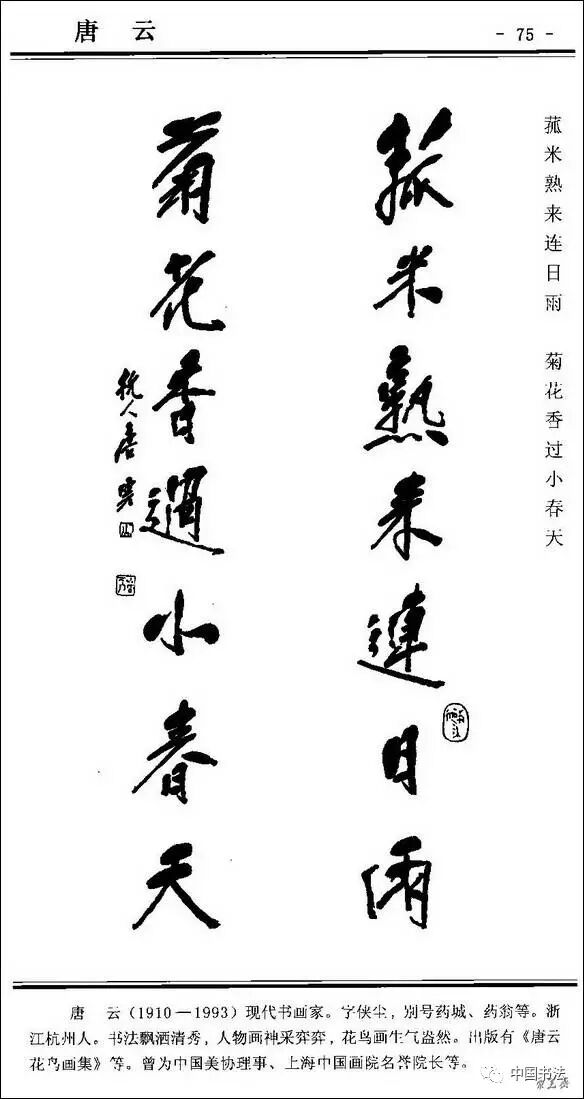 唐 云
- 75 -
菰米熟来连日雨 菊花香过小春天
菰米熟来連日雨
菊花香過小春天
杭人唐云
唐 云(1910—1993)现代书画家。字侠尘,别号药城、药翁等。浙
江杭州人。书法飘洒清秀,人物画神采弈弈,花鸟画生气盎然。出版有《唐云
花鸟画集》等。曾为中国美协理事、上海中国画院名誉院长等。
中国书法